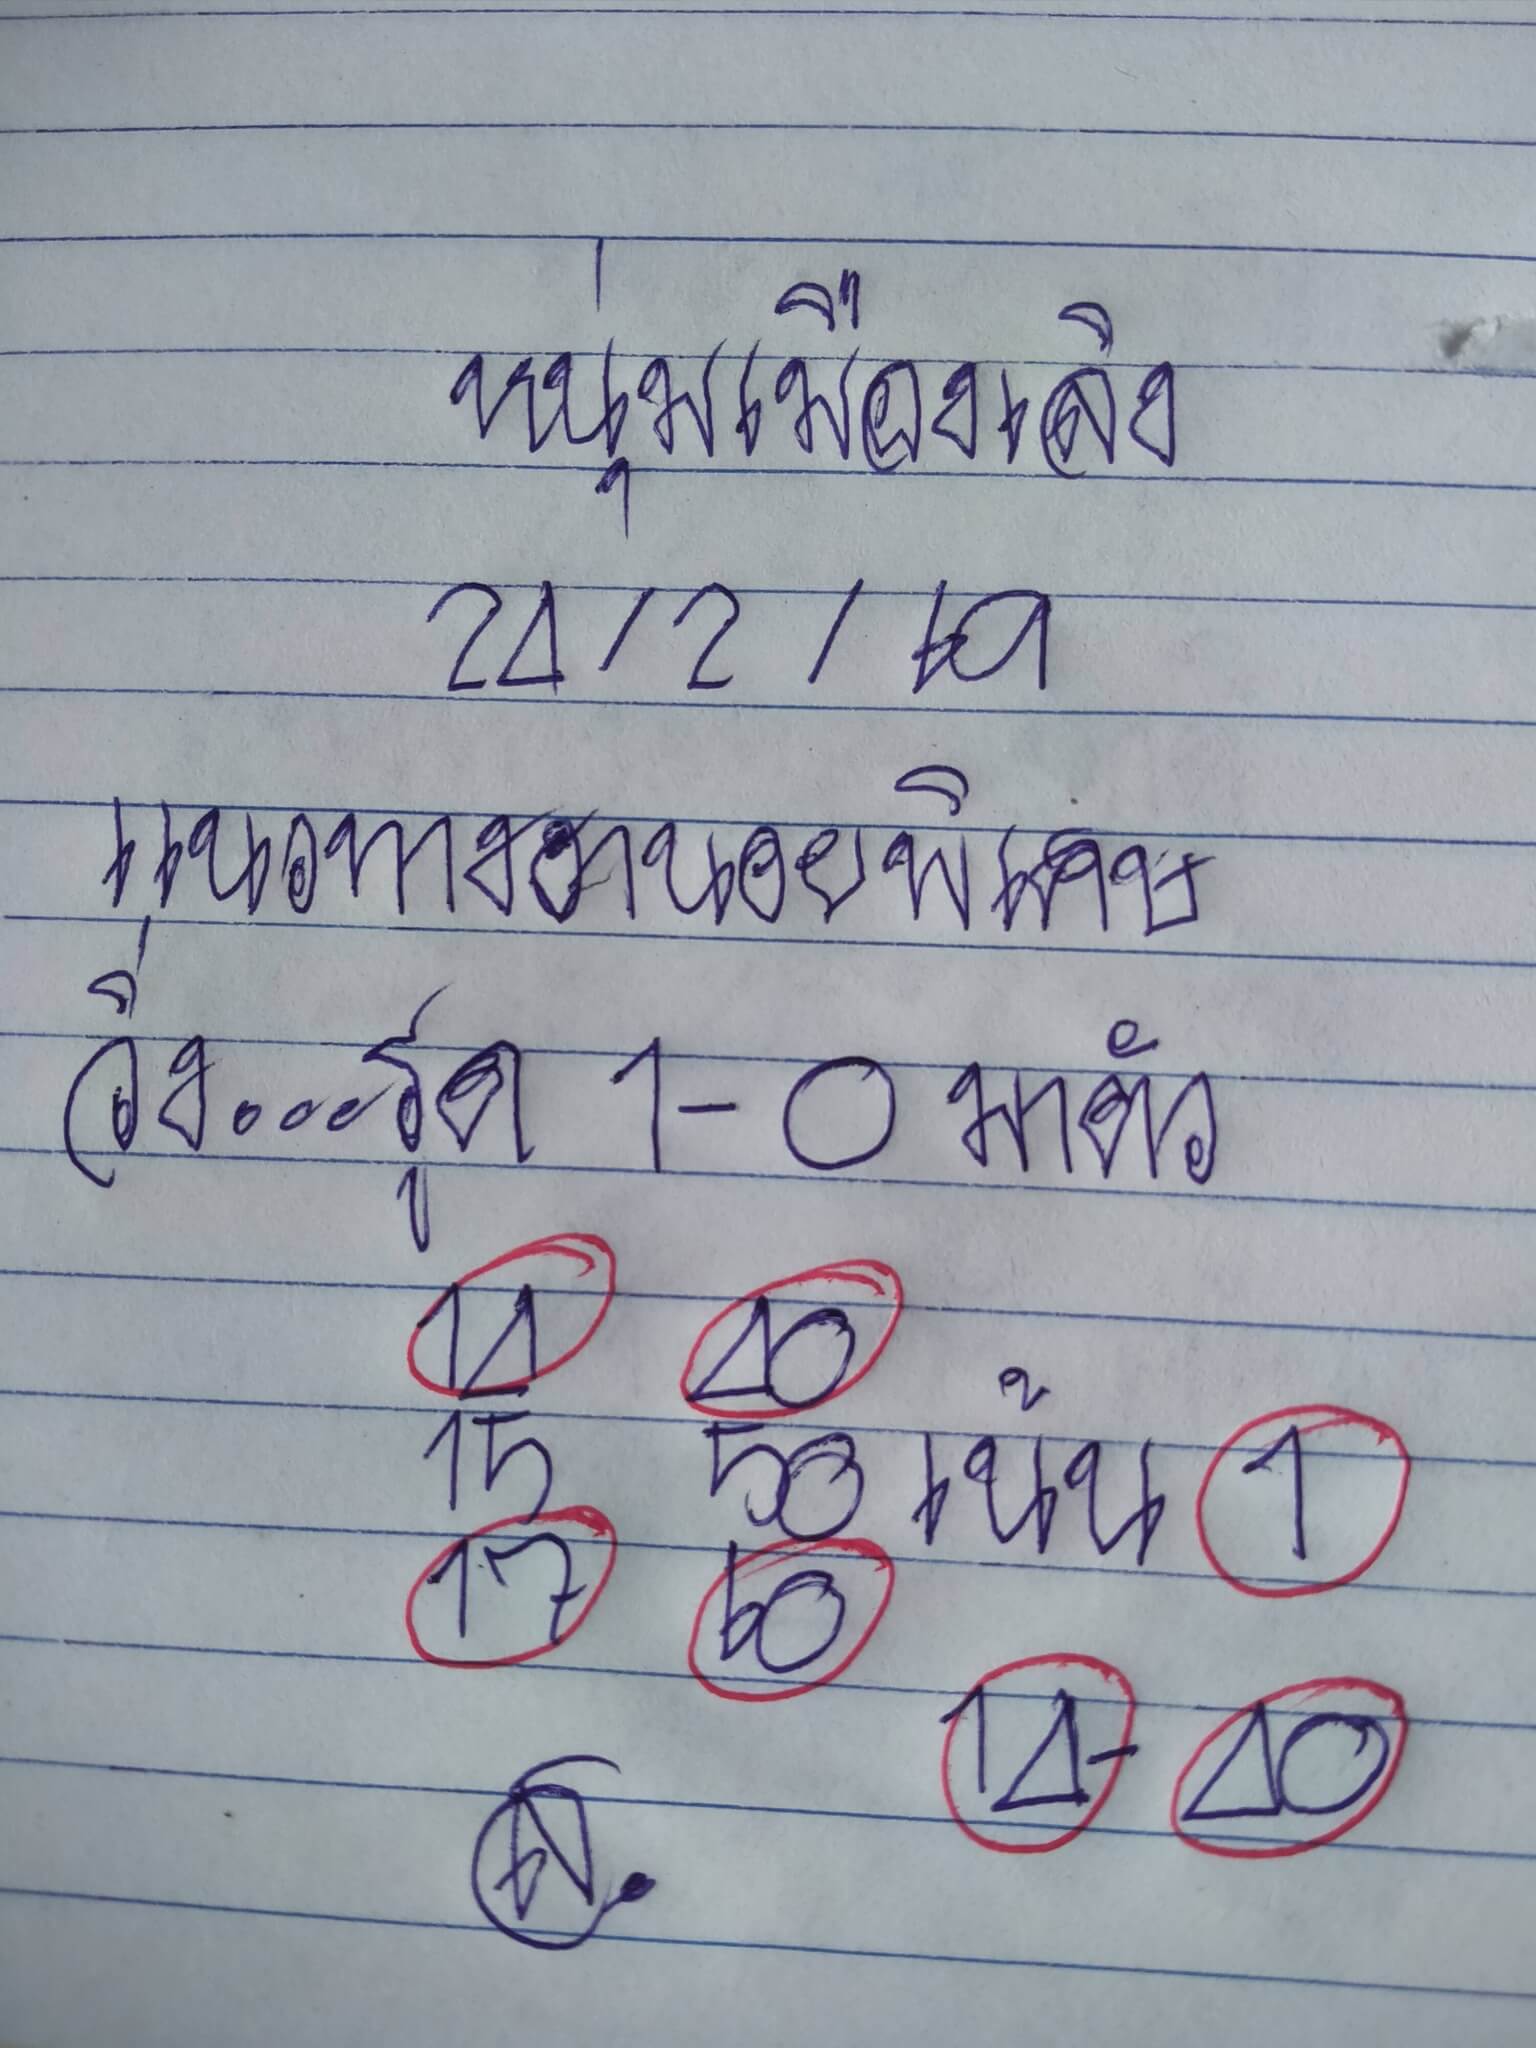 หนุ่มเมืองเลิง
24/2/69
แนวทางฮานอยพิเศษ
วิ่ง...รูด 1-0 มาตัว
14 40
15 50 เน้น 1
17 60
14-40